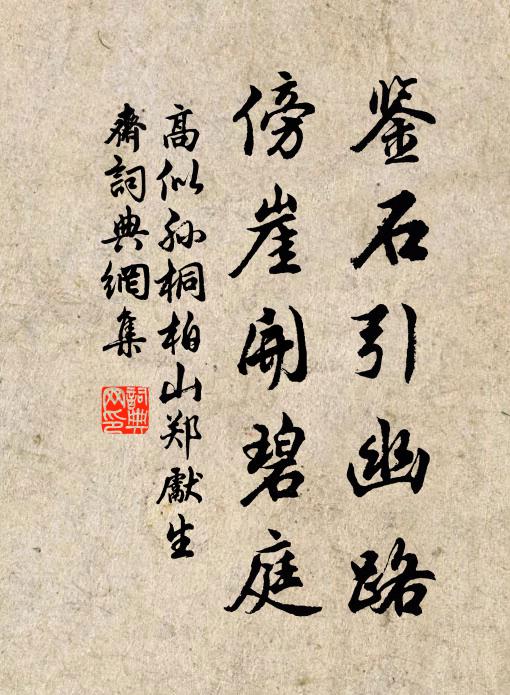 鉴石引幽路
傍崖开碧庭
高似孙桐柏山郑獻生
齋詞典網集
詞典
网印